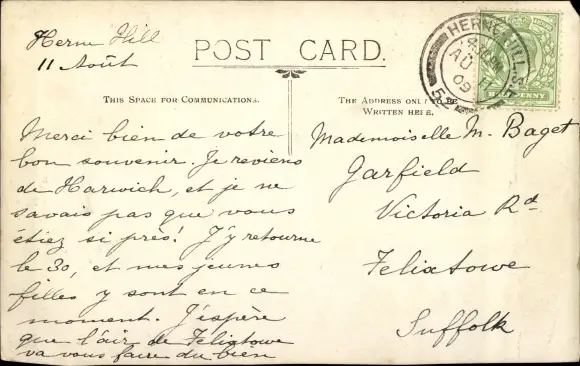 Herne Hill
11 Août
POST CARD.
THIS SPACE FOR COMMUNICATIONS.
THE ADDRESS ONLY TO BE
WRITTEN HERE.
HERNE HILL S.E.
AU
09
Merci bien de votre
bon souvenir. Je reviens
de Harwich, et je ne
savais pas que vous
étiez si près! J'y retourne
le 30, et mes jeunes
filles y sont en ce
moment. J'espère
que l'air de Felixtowe
va vous faire du bien
Mademoiselle M. Baget
Garfield
Victoria Rd
Felixtowe
Suffolk